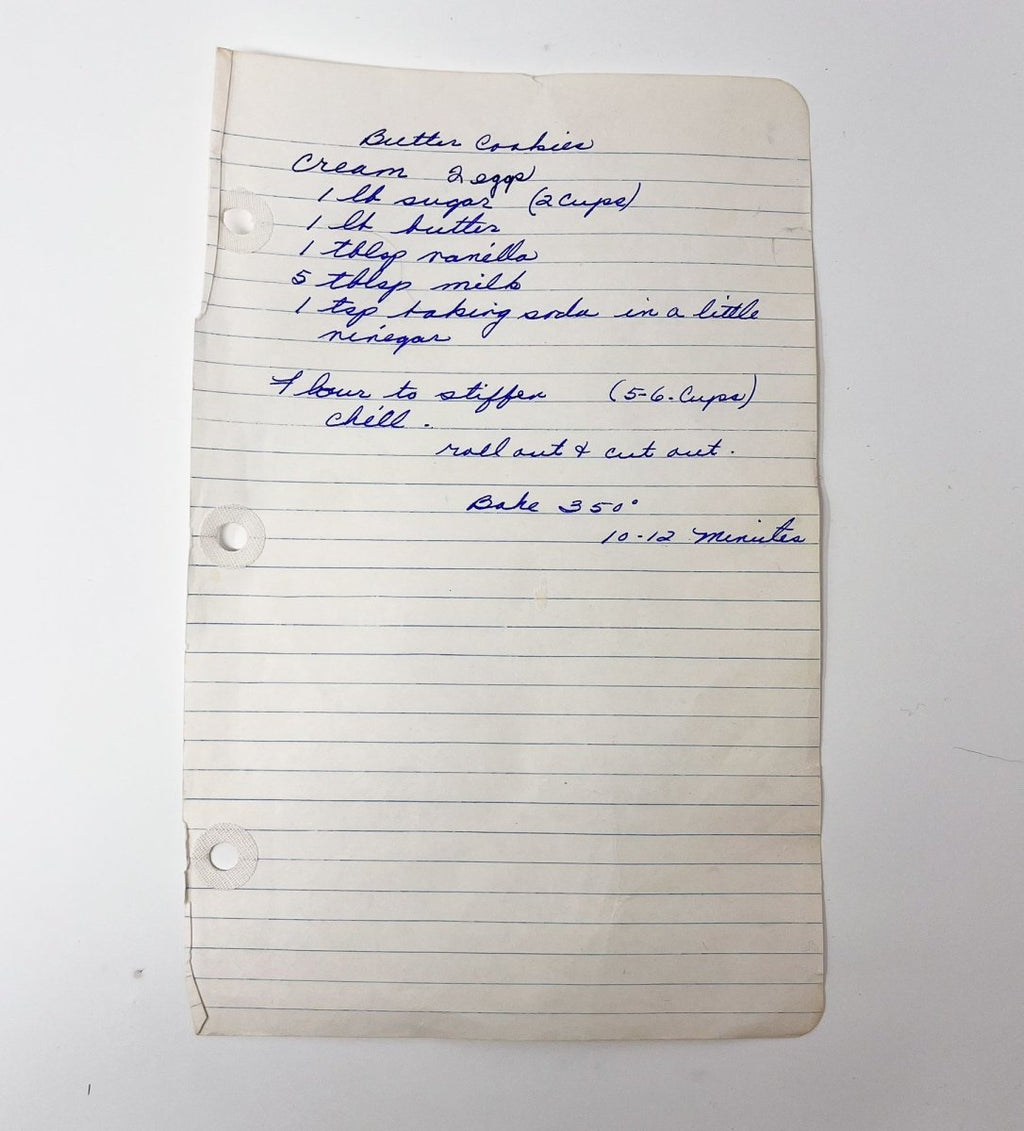 Butter Cookies
Cream 2 eggs
1 lb sugar (2 Cups)
1 lb butter
1 tblsp vanilla
5 tblsp milk
1 tsp baking soda in a little
vinegar
Flour to stiffen (5-6. Cups)
chill.
roll out & cut out.
Bake 350°
10-12 Minutes